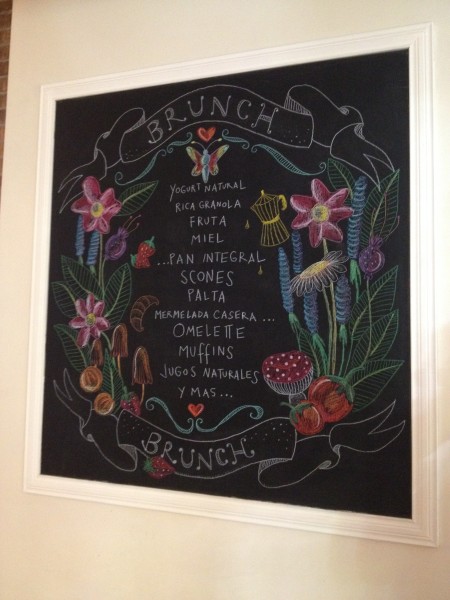 BRUNCH
YOGURT NATURAL
RICA GRANOLA
FRUTA
MIEL
...PAN INTEGRAL
SCONES
PALTA
MERMELADA CASERA...
OMELETTE
MUFFINS
JUGOS NATURALES
Y MAS...
BRUNCH